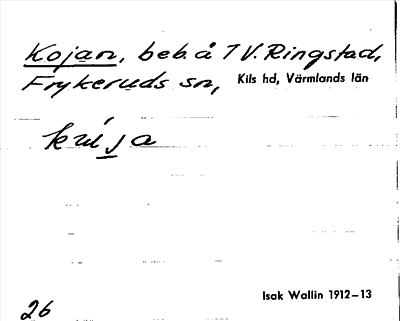 Kojan, beb. å 1 V. Ringstad,
Frykeruds sn, Kils hd, Värmlands län
Isak Wallin 1912–13
26